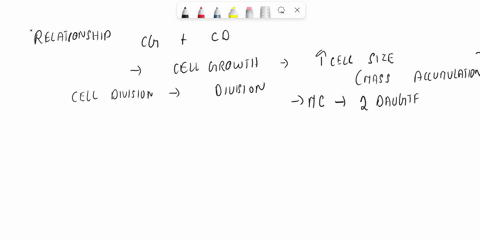 RELATIONSHIP CG + CD
→ CELL GROWTH → ↑ CELL SIZE
(MASS ACCUMULATION
CELL DIVISION → DIVISION
→ MC → 2 DAUGTE